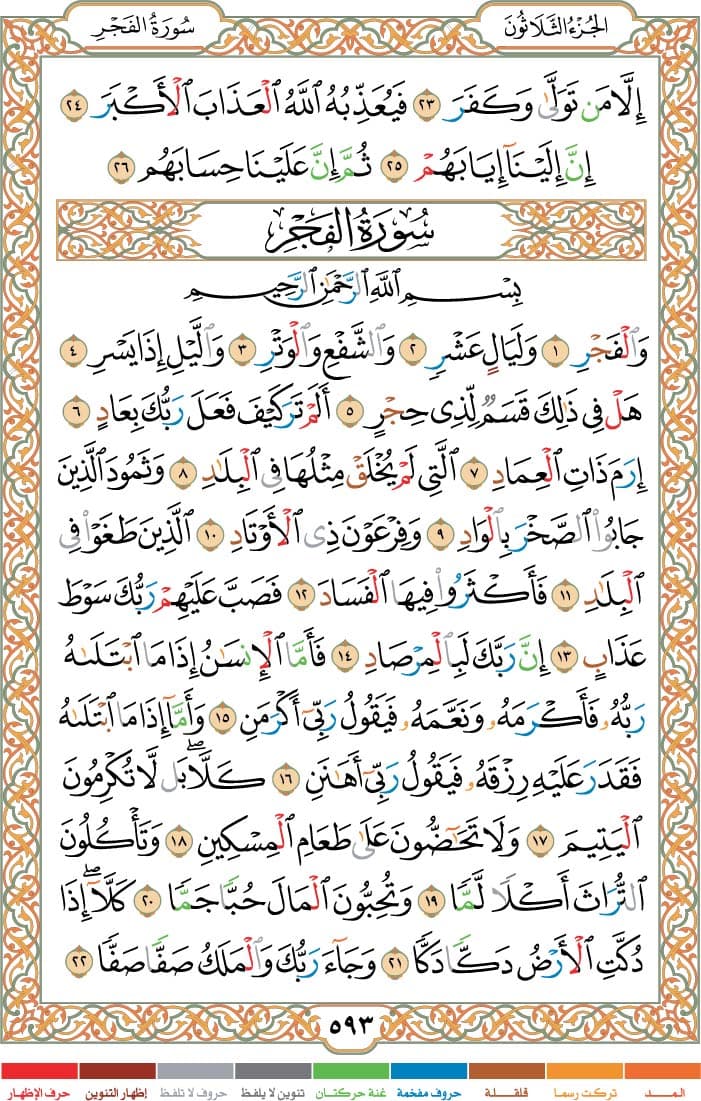 الجُزْءُ الثَّلَاثُونَ
سُورَةُ الفَجْرِ
إِلَّا مَن تَوَلَّىٰ وَكَفَرَ ٢٣ فَيُعَذِّبُهُ ٱللَّهُ ٱلْعَذَابَ ٱلْأَكْبَرَ ٢٤
إِنَّ إِلَيْنَآ إِيَابَهُمْ ٢٥ ثُمَّ إِنَّ عَلَيْنَا حِسَابَهُم ٢٦
سُورَةُ الفَجْرِ
بِسْمِ ٱللَّهِ ٱلرَّحْمَٰنِ ٱلرَّحِيمِ
وَٱلْفَجْرِ ١ وَلَيَالٍ عَشْرٍ ٢ وَٱلشَّفْعِ وَٱلْوَتْرِ ٣ وَٱلَّيْلِ إِذَا يَسْرِ ٤
هَلْ فِى ذَٰلِكَ قَسَمٌ لِّذِى حِجْرٍ ٥ أَلَمْ تَرَ كَيْفَ فَعَلَ رَبُّكَ بِعَادٍ ٦
إِرَمَ ذَاتِ ٱلْعِمَادِ ٧ ٱلَّتِى لَمْ يُخْلَقْ مِثْلُهَا فِى ٱلْبِلَٰدِ ٨ وَثَمُودَ ٱلَّذِينَ
جَابُوا۟ ٱلصَّخْرَ بِٱلْوَادِ ٩ وَفِرْعَوْنَ ذِى ٱلْأَوْتَادِ ١٠ ٱلَّذِينَ طَغَوْا۟ فِى
ٱلْبِلَٰدِ ١١ فَأَكْثَرُوا۟ فِيهَا ٱلْفَسَادَ ١٢ فَصَبَّ عَلَيْهِمْ رَبُّكَ سَوْطَ
عَذَابٍ ١٣ إِنَّ رَبَّكَ لَبِٱلْمِرْصَادِ ١٤ فَأَمَّا ٱلْإِنسَٰنُ إِذَا مَا ٱبْتَلَىٰهُ
رَبُّهُۥ فَأَكْرَمَهُۥ وَنَعَّمَهُۥ فَيَقُولُ رَبِّىٓ أَكْرَمَنِ ١٥ وَأَمَّآ إِذَا مَا ٱبْتَلَىٰهُ
فَقَدَرَ عَلَيْهِ رِزْقَهُۥ فَيَقُولُ رَبِّىٓ أَهَٰنَنِ ١٦ كَلَّا ۖ بَل لَّا تُكْرِمُونَ
ٱلْيَتِيمَ ١٧ وَلَا تَحَٰٓضُّونَ عَلَىٰ طَعَامِ ٱلْمِسْكِينِ ١٨ وَتَأْكُلُونَ
ٱلتُّرَاثَ أَكْلًا لَّمًّا ١٩ وَتُحِبُّونَ ٱلْمَالَ حُبًّا جَمًّا ٢٠ كَلَّآ ۖ إِذَا
دُكَّتِ ٱلْأَرْضُ دَكًّا دَكًّا ٢١ وَجَآءَ رَبُّكَ وَٱلْمَلَكُ صَفًّا صَفًّا ٢٢
٥٩٣
المــد تركت رسما قلقلة حروف مفخمة غنة حركتان تنوين لا يلفظ حروف لا تلفظ إظهار التنوين حرف الإظهار